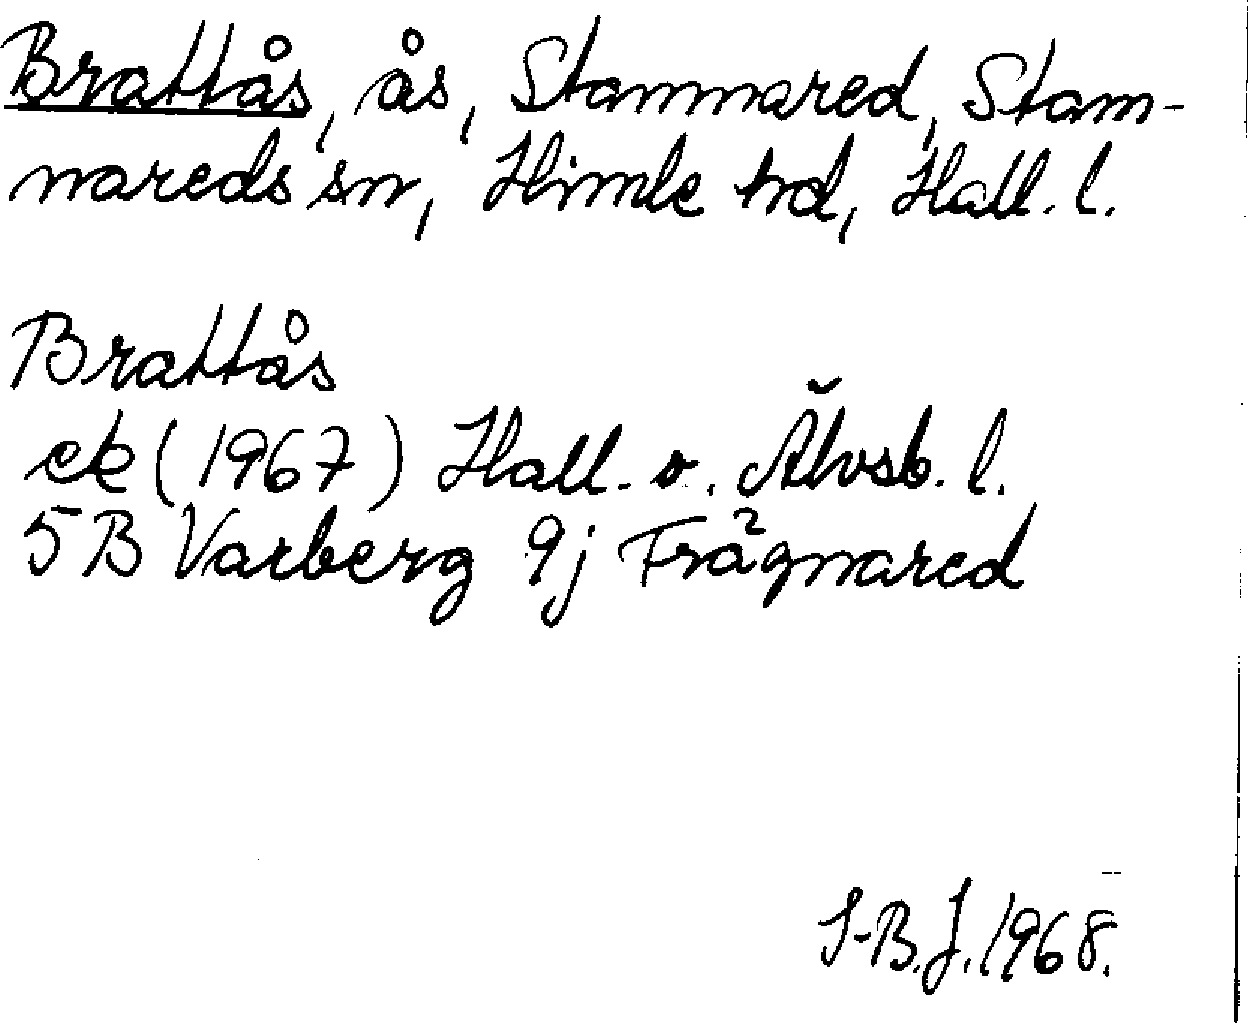 Brattås, ås, Stamnared, Stam-
nareds sn, Himle hd, Hall. l.
Brattås
ek (1967) Hall. o. Älvsb. l.
5B Varberg 9j Frägnared
S-B.J. 1968.